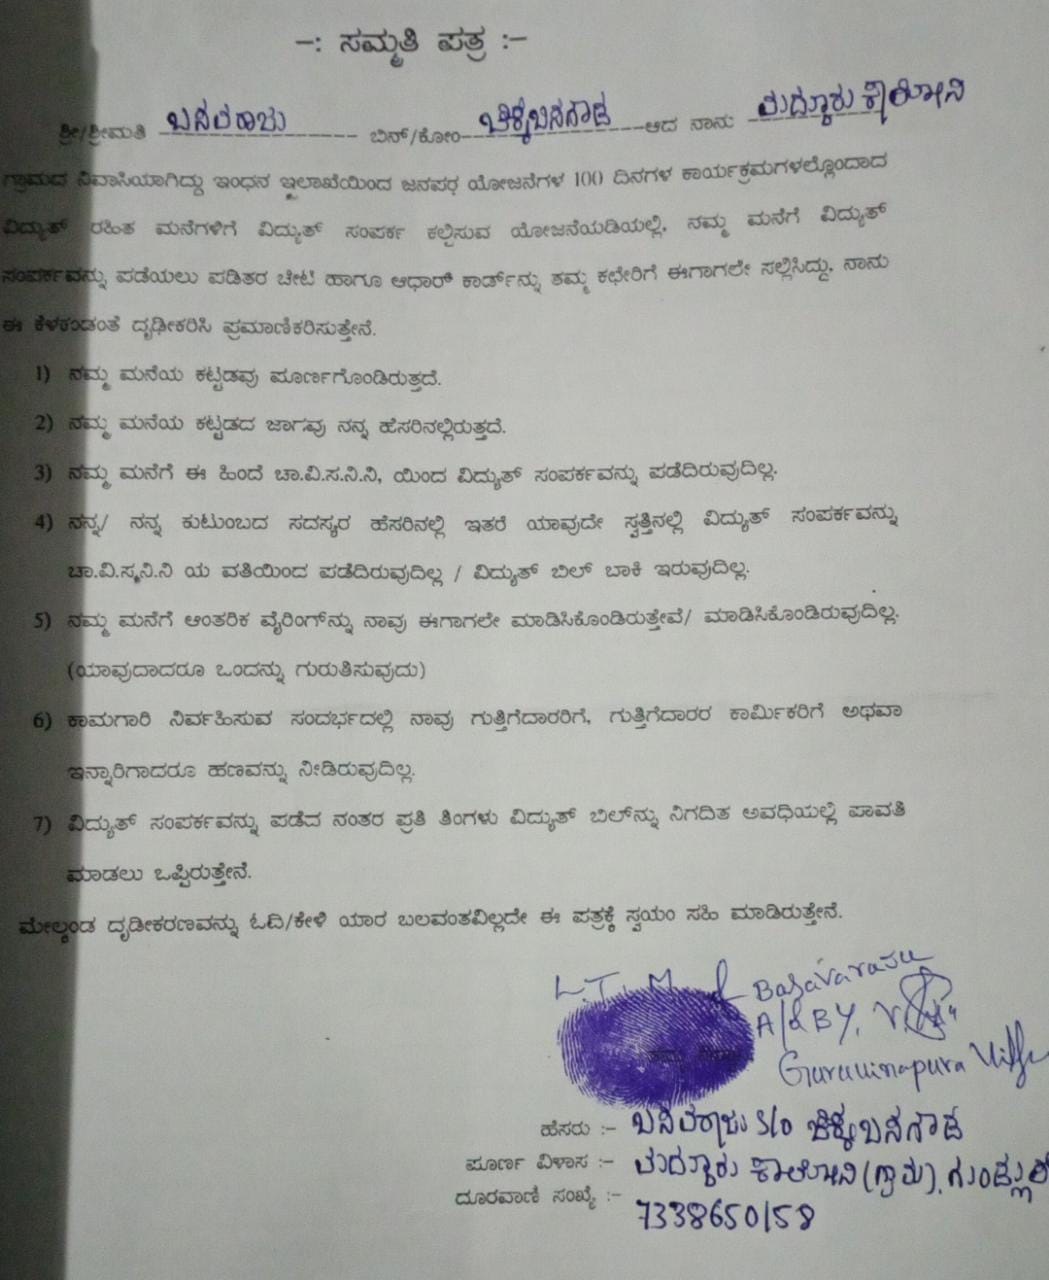 -: ಸಮ್ಮತಿ ಪತ್ರ :-
ಶ್ರೀ/ಶ್ರೀಮತಿ ಬಸವರಾಜು ಬಿನ್/ಕೋಂ ಚಿಕ್ಕಬಸಗೌಡ ಆದ ನಾನು ಮದ್ದೂರು ಕಾಲೋನಿ
ಗ್ರಾಮದ ನಿವಾಸಿಯಾಗಿದ್ದು ಇಂಧನ ಇಲಾಖೆಯಿಂದ ಜನಪರ ಯೋಜನೆಗಳ 100 ದಿನಗಳ ಕಾರ್ಯಕ್ರಮಗಳಲ್ಲೊಂದಾದ
ವಿದ್ಯುತ್ ರಹಿತ ಮನೆಗಳಿಗೆ ವಿದ್ಯುತ್ ಸಂಪರ್ಕ ಕಲ್ಪಿಸುವ ಯೋಜನೆಯಡಿಯಲ್ಲಿ, ನಮ್ಮ ಮನೆಗೆ ವಿದ್ಯುತ್
ಸಂಪರ್ಕವನ್ನು ಪಡೆಯಲು ಪಡಿತರ ಚೀಟಿ ಹಾಗೂ ಆಧಾರ್ ಕಾರ್ಡ್‌ನ್ನು ತಮ್ಮ ಕಛೇರಿಗೆ ಈಗಾಗಲೇ ಸಲ್ಲಿಸಿದ್ದು, ನಾನು
ಈ ಕೆಳಕಂಡಂತೆ ದೃಢೀಕರಿಸಿ ಪ್ರಮಾಣಿಕರಿಸುತ್ತೇನೆ.
1) ನಮ್ಮ ಮನೆಯ ಕಟ್ಟಡವು ಪೂರ್ಣಗೊಂಡಿರುತ್ತದೆ.
2) ನಮ್ಮ ಮನೆಯ ಕಟ್ಟಡದ ಜಾಗವು ನನ್ನ ಹೆಸರಿನಲ್ಲಿರುತ್ತದೆ.
3) ನಮ್ಮ ಮನೆಗೆ ಈ ಹಿಂದೆ ಚಾ.ವಿ.ಸ.ನಿ.ನಿ, ಯಿಂದ ವಿದ್ಯುತ್ ಸಂಪರ್ಕವನ್ನು ಪಡೆದಿರುವುದಿಲ್ಲ.
4) ನನ್ನ/ ನನ್ನ ಕುಟುಂಬದ ಸದಸ್ಯರ ಹೆಸರಿನಲ್ಲಿ ಇತರೆ ಯಾವುದೇ ಸ್ವತ್ತಿನಲ್ಲಿ ವಿದ್ಯುತ್ ಸಂಪರ್ಕವನ್ನು
ಚಾ.ವಿ.ಸ.ನಿ.ನಿ ಯ ವತಿಯಿಂದ ಪಡೆದಿರುವುದಿಲ್ಲ / ವಿದ್ಯುತ್ ಬಿಲ್ ಬಾಕಿ ಇರುವುದಿಲ್ಲ.
5) ನಮ್ಮ ಮನೆಗೆ ಆಂತರಿಕ ವೈರಿಂಗ್‌ನ್ನು ನಾವು ಈಗಾಗಲೇ ಮಾಡಿಸಿಕೊಂಡಿರುತ್ತೇವೆ/ ಮಾಡಿಸಿಕೊಂಡಿರುವುದಿಲ್ಲ.
(ಯಾವುದಾದರೂ ಒಂದನ್ನು ಗುರುತಿಸುವುದು)
6) ಕಾಮಗಾರಿ ನಿರ್ವಹಿಸುವ ಸಂದರ್ಭದಲ್ಲಿ ನಾವು ಗುತ್ತಿಗೆದಾರರಿಗೆ, ಗುತ್ತಿಗೆದಾರರ ಕಾರ್ಮಿಕರಿಗೆ ಅಥವಾ
ಇನ್ನಾರಿಗಾದರೂ ಹಣವನ್ನು ನೀಡಿರುವುದಿಲ್ಲ.
7) ವಿದ್ಯುತ್ ಸಂಪರ್ಕವನ್ನು ಪಡೆದ ನಂತರ ಪ್ರತಿ ತಿಂಗಳು ವಿದ್ಯುತ್ ಬಿಲ್‌ನ್ನು ನಿಗದಿತ ಅವಧಿಯಲ್ಲಿ ಪಾವತಿ
ಮಾಡಲು ಒಪ್ಪಿರುತ್ತೇನೆ.
ಮೇಲ್ಕಂಡ ದೃಡೀಕರಣವನ್ನು ಓದಿ/ಕೇಳಿ ಯಾರ ಬಲವಂತವಿಲ್ಲದೇ ಈ ಪತ್ರಕ್ಕೆ ಸ್ವಯಂ ಸಹಿ ಮಾಡಿರುತ್ತೇನೆ.
L.T.M of Basavaraju
BY,
ಹೆಸರು :- ಬಸವರಾಜು S/o ಚಿಕ್ಕಬಸಗೌಡ
ಪೂರ್ಣ ವಿಳಾಸ :- ಮದ್ದೂರು ಕಾಲೋನಿ (ಗ್ರಾಮ),
ದೂರವಾಣಿ ಸಂಖ್ಯೆ :- 7338650158